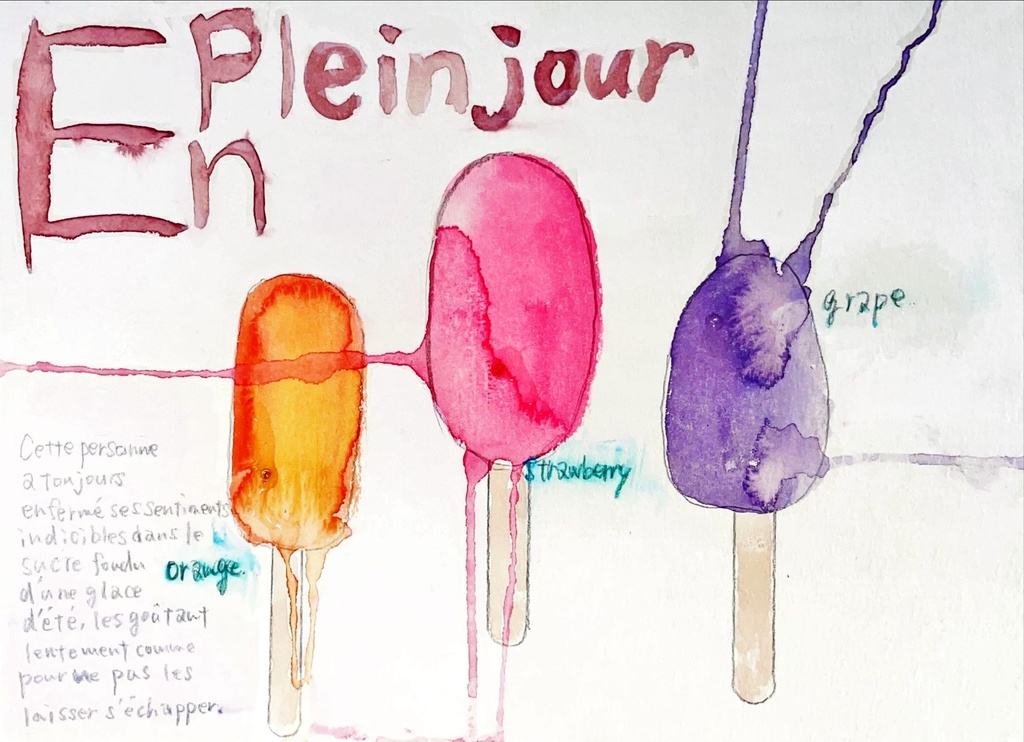 En Plein jour
grape
strawberry
orange.
Cette personne
a toujours
enfermé ses sentiments
indicibles dans le
sucre fondu
d'une glace
d'été, les goûtant
lentement comme
pour ne pas les
laisser s'échapper.